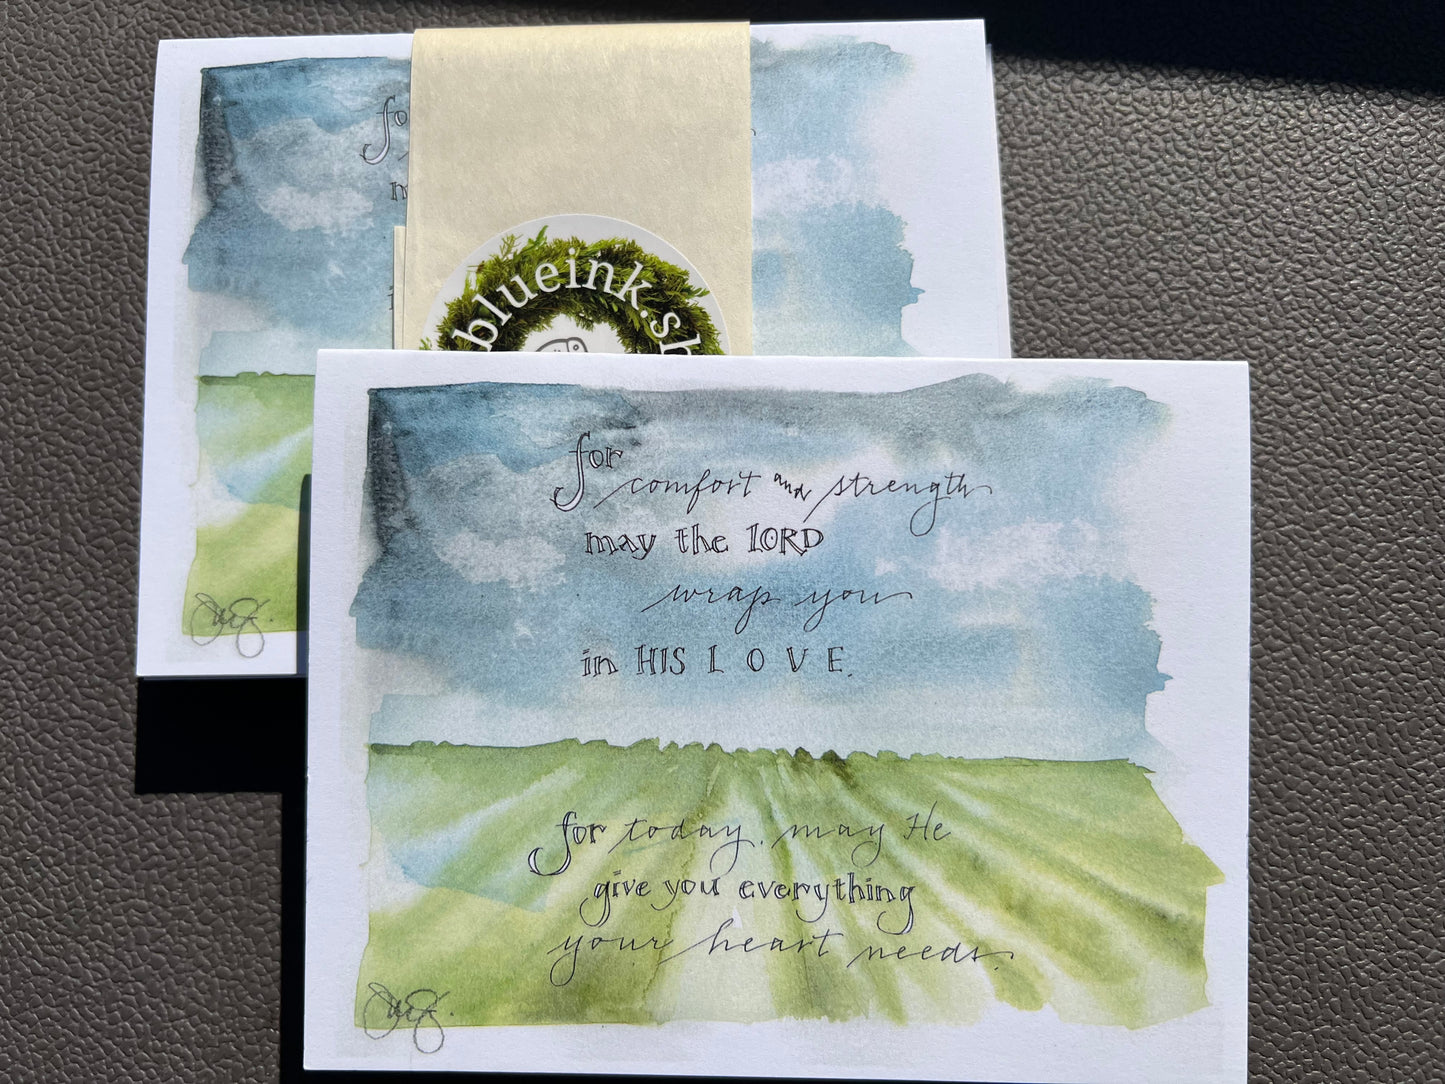 fo
m
blueink.sh
for
comfort and strength
may the LORD
wrap you
in HIS LOVE.
for today. may He
give you everything
your heart needs.